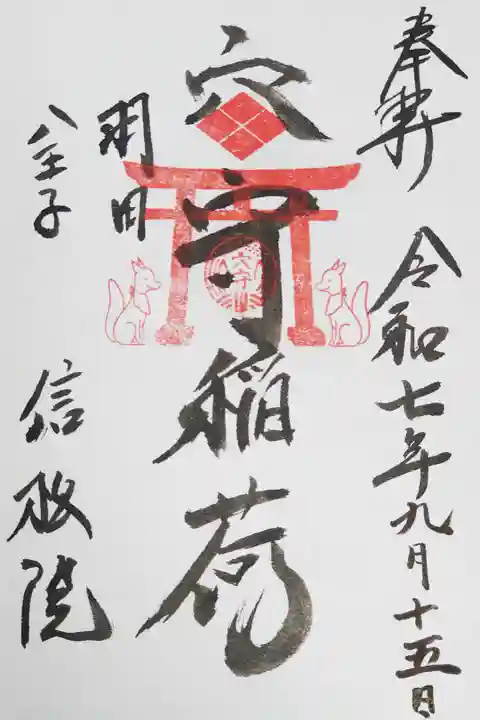 奉拝
令和七年九月十五日
穴守稲荷
穴守
羽田
八王子
信政院